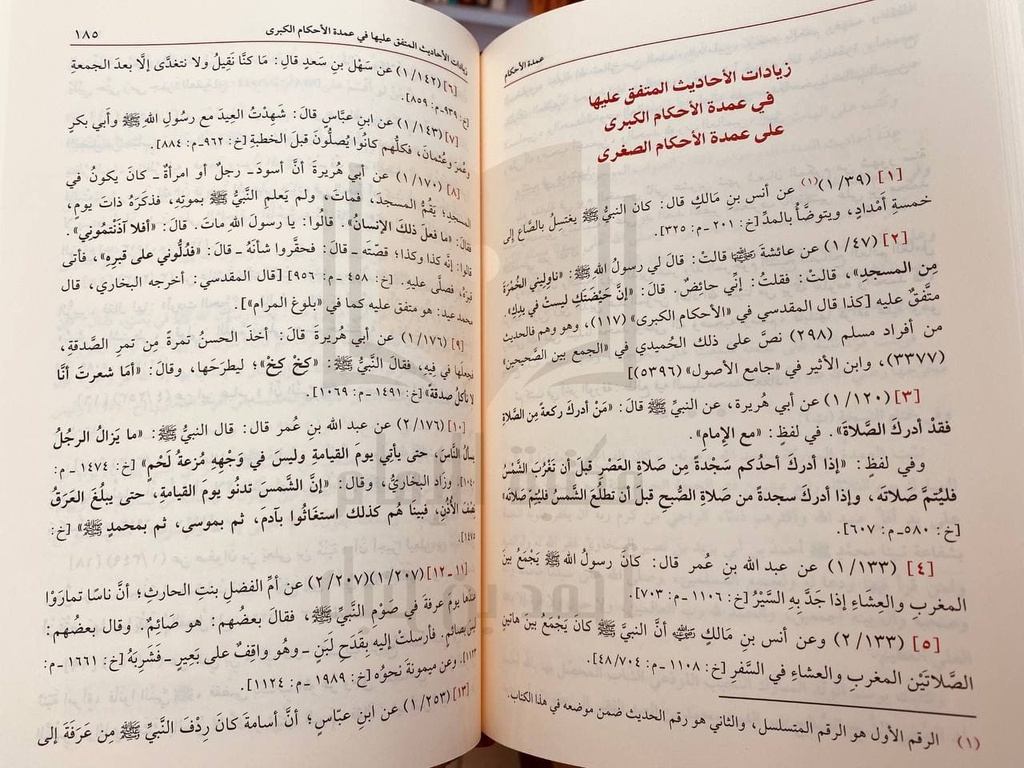 عمدة الأحكام
زيادات الأحاديث المتفق عليها
في عمدة الأحكام الكبرى
على عمدة الأحكام الصغرى
[١] (١/٣٩)(١) عن أنس بنِ مَالكٍ قال: كان النبيُّ ﷺ يغتسِلُ بالصَّاعِ إلى
خمسةِ أمْدادٍ، ويتوضَّأُ بالمدِّ [خ: ٢٠١ -م: ٣٢٥].
[٢] (١/٤٧) عن عائشةَ ﵂ قالتْ: قالَ لي رسولُ اللهِ ﷺ: «ناوِليني الخُمْرَةَ
مِن المسجدِ»، قالتْ: فقلتُ: إنِّي حائِضٌ. قالَ: «إنَّ حَيْضَتَكِ ليستْ في يدِكِ».
متَّفقٌ عليه [كذا قال المقدسي في «الأحكام الكبرى» (١١٧)، وهو وهم فالحديث
من أفراد مسلم (٢٩٨) نصَّ على ذلك الحُميدي في «الجمع بين الصَّحيحين»
(٣٣٧٧)، وابن الأثير في «جامع الأصول» (٥٣٩٦)]
[٣] (١/١٢٠) عن أبي هُريرة، عن النبيِّ ﷺ قالَ: «مَنْ أدركَ ركعةً مِن الصَّلاةِ
فقدْ أدركَ الصَّلاةَ». في لفظٍ: «مع الإمامِ».
وفي لفظٍ: «إذا أدركَ أحدُكم سَجْدةً مِن صَلاةِ العَصْرِ قبلَ أن تَغْرُبَ الشَّمْسُ
فليُتمَّ صَلاتَه، وإذا أدركَ سجدةً من صَلاةِ الصُّبحِ قبلَ أن تطلُعَ الشَّمْسُ فليُتِمَّ صَلاتَه»
[خ: ٥٨٠ -م: ٦٠٧].
[٤] (١/١٣٣) عن عبد الله بنِ عُمر قالَ: كانَ رسولُ الله ﷺ يَجْمَعُ بينَ
المغربِ والعِشَاءِ إذا جَدَّ بِهِ السَّيْرُ [خ: ١١٠٦ -م: ٧٠٣].
[٥] (٢/١٣٣) وعن أنس بنِ مَالكٍ ﵁ أنَّ النبيَّ ﷺ كانَ يَجْمَعُ بينَ هاتينِ
الصَّلاتَيْنِ المغربِ والعشاءِ في السَّفرِ [خ: ١١٠٨ -م: ٤٨/٧٠٤].
(١) الرقم الأول هو الرقم المتسلسل، والثاني هو رقم الحديث ضمن موضعه في هذا الكتاب.
زيادات الأحاديث المتفق عليها في عمدة الأحكام الكبرى
١٨٥
[٦] (١/١٤٢) عن سَهْل بنِ سَعدٍ قالَ: مَا كنَّا نَقِيلُ ولا نتغدَّى إلَّا بعدَ الجمعةِ
[خ: ٩٣٩-م: ٨٥٩].
[٧] (١/١٤٣) عن ابنِ عبَّاس قالَ: شَهِدْتُ العِيدَ مع رسُولِ اللهِ ﷺ وأبي بكرٍ
وعُمرَ وعُثمانَ، فكلُّهم كانُوا يُصلُّونَ قبلَ الخطبةِ [خ: ٩٦٢-م: ٨٨٤].
[٨] (١/١٧٠) عن أبي هُريرةَ أنَّ أسودَ- رجلٌ أو امرأةٌ- كانَ يكونُ في
المسجدِ؛ يَقُمُّ المسجدَ، فماتَ، ولم يَعلمِ النبيُّ ﷺ بموتِهِ، فذكَرَهُ ذاتَ يومٍ،
فقالَ: «ما فعلَ ذلكَ الإنسانُ». قالُوا: يا رسولَ اللهِ ماتَ. قالَ: «أفلا آذَنْتُموني».
قالُوا: إنَّه كذا وكذا؛ قصَّتَه ـ قالَ: فحقَّروا شأنَهُ ـ قالَ: «فدُلُّوني على قبرِهِ»، فأتى
قبرَهُ، فصلَّى عليهِ. [خ: ٤٥٨ -م: ٩٥٦] [قال المقدسي: أخرجه البخاري، قال
محمد عيد: هو متفق عليه كما في «بلوغ المرام»]
[٩] (١/١٧٦) عن أبي هُريرةَ قالَ: أخذَ الحسنُ تمرةً مِن تمرِ الصَّدقةِ،
فجعلَها في فِيهِ، فقالَ النبيُّ ﷺ: «كِخْ كِخْ»؛ ليطرَحَها، وقالَ: «أمَا شعرتَ أنَّا
لا نأكلُ صدقةً» [خ: ١٤٩١ -م: ١٠٦٩].
[١٠] (٢/١٧٦) عن عبدِ الله بنِ عُمر قالَ: قالَ النبيُّ ﷺ: «ما يزَالُ الرجُلُ
يسألُ النَّاسَ، حتى يأتِي يومَ القيامةِ وليسَ في وَجْهِهِ مُزعةُ لَحْمٍ» [خ: ١٤٧٤ -م:
١٠٤٠]. وزاد البخاريُّ، وقال: «إنَّ الشَّمسَ تدنُو يومَ القيامةِ، حتى يبلُغَ العَرَقُ
نِصْفَ الأُذُنِ، فبينَا هُم كذلك استغَاثُوا بآدَمَ، ثم بموسى، ثم بمحمدٍ ﷺ» [خ:
١٤٧٥].
[١١-١٢] (١/٢٠٧)(٢/٢٠٧) عن أمِّ الفضلِ بنتِ الحارثِ؛ أنَّ ناسًا تمارَوْا
عندَها يومَ عرفةَ في صَوْمِ النَّبيِّ ﷺ، فقالَ بعضُهم: هو صَائِمٌ. وقالَ بعضُهم:
ليسَ بصائمٍ. فأرسلتُ إليهِ بقَدَحِ لَبَنٍ ـ وهو واقِفٌ على بَعِيرٍ ـ فشَرِبَهُ [خ: ١٦٦١ -م:
١١٢٣]. وعن ميمونةَ نحوُه [خ: ١٩٨٩ -م: ١١٢٤].
[١٣] (١/٢٥٣) عن ابنِ عبَّاس؛ أنَّ أسامةَ كانَ رِدْفَ النَّبيِّ ﷺ مِن عَرَفةَ إلى